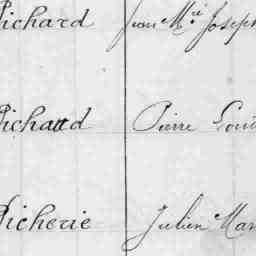 Pichard Jean M.rie Joseph
Pichard Pierre Loui
Picherie Julien Mar